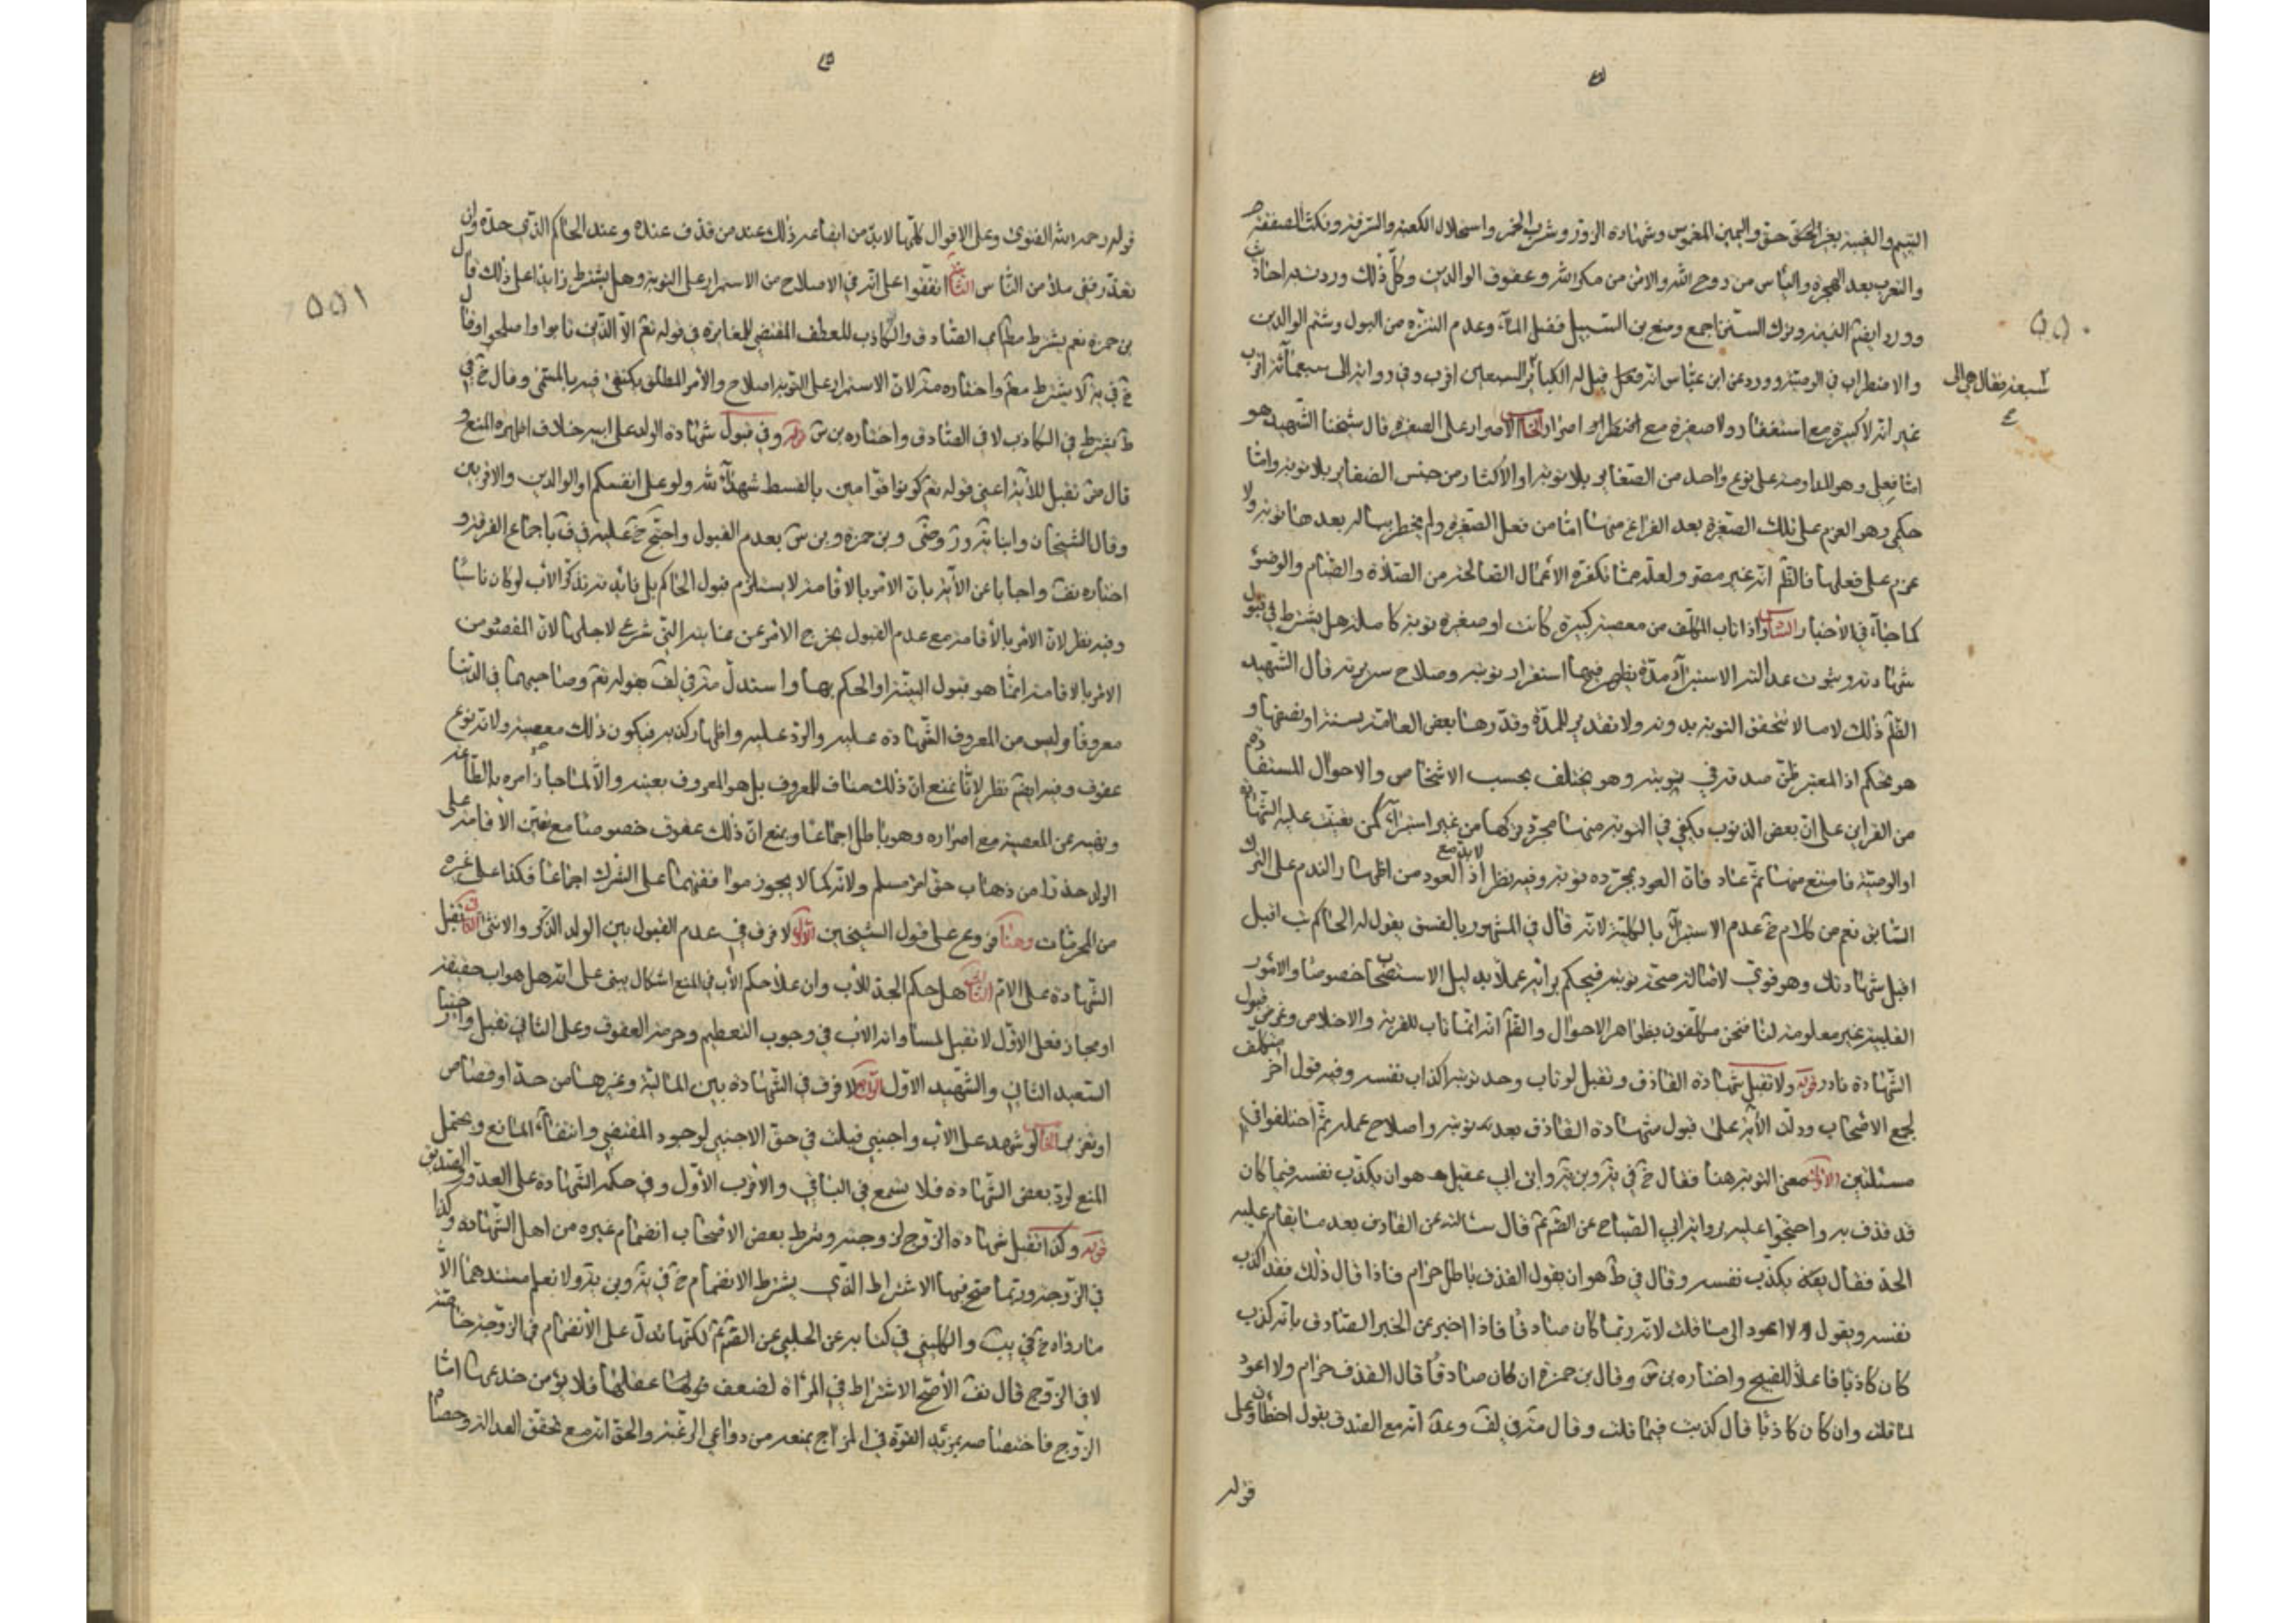 اليتيم والغيبة بغير الحق حق واليمين الغموس وشهادة الزور وشرب الخمر واستحلال الكعبة والسرقة ونكث الصفقة
والتعرب بعد الهجرة واليأس من روح الله والامن من مكر الله وعقوق الوالدين وكل ذلك وردت به احاديث
وورد ايضا النميمة وترك السنن اجمع ومنع بن السبيل فضل الماء وعدم التنزه من البول وشتم الوالدين
والاضطراب في الوصية وورد عن ابن عباس انه قيل له الكبائر السبع الى اقرب وفي رواية الى سبعمائة اقرب
سبعة فقال هي الى
٥٥٠
غير انه لا كبيرة مع استغفار ولا صغيرة مع اصرار الخامس الاصرار على الصغيرة قال شيخنا الشهيد هو
امّا فعلي وهو المداومة على نوع واحد من الصغاير بلا توبة او الاكثار من جنس الصغاير بلا توبة وامّا
حكمي وهو العزم على تلك الصغيرة بعد الفراغ منها امّا من فعل الصغيرة ولم يخطر بباله بعدها توبة ولا
عزم على فعلها فالظّ انه غير مصر ولعله ممّا تكفره الاعمال الصالحة من الصلاة والصيام والوضوء
كما جاء في الأخبار السادس واذا تاب المكلف من معصية كبيرة كانت او صغيرة توبة كاملة هل يشترط في قبول
شهادته وثبوت عدالته الاستبراء مدة يظهر فيها استقرار توبته وصلاح سريرته قال الشهيد
الظّ ذلك لاما لا تتحقق التوبة بدونه ولا تقدير للمدة وقدرها بعض العامة بسنة او نصفها و
هو تحكم اذ المعتبر ظن صدقه في توبته وهو يختلف بحسب الاشخاص والاحوال المستفادة
من القراين على انّ بعض الذنوب يكفي في التوبة منها مجرد تركها من غير استبراء كمن يتعين عليه الشهادة
او الوصية فامتنع منها ثم عاد فان العود بمجرده توبة وفيه نظر اذ لا بد مع العود من اظهار الندم على الترك
السابق نعم من كلام خ عدم الاستبراء بالكلية لانه قال في المشهور بالفسق يقول له الحاكم تب اقبل
اقبل شهادتك وهو قوي لاصالة صحة توبته فيحكم ببرائته عملا بدليل الاستصحاب خصوصا والامور
القلبية غير معلومة لنا فنحن مكلفون بظواهر الاحوال والظّ انه انما تاب للقربة والاخلاص وغرض قبول
الشهادة نادر قوله ولا تقبل شهادة القاذف وتقبل لو تاب وحد توبته اكذاب نفسه وفيه قول اخر متكلف
لجمع الاصحاب ودلت الآية على قبول شهادة القاذف بعد توبته واصلاح عمله ثم اختلفوا في
مسئلتين الاولى معنى التوبة هنا فقال خ في يه وبن يه وابن ابي عقيل هو ان يكذب نفسه فيما كان
قد قذف به واحتجوا عليه برواية ابي الصباح عن الصّ عم قال سألته عن القاذف بعد ما يقام عليه
الحد فقال يكذب نفسه وقال في ط هو ان يقول القذف باطل حرام فاذا قال ذلك فقد اكذب
نفسه ويقول ولا اعود الى ما قلت لانه ربما كان صادقا فاذا اخبر عن الخبر الصادف بانه كذب
كان كاذبا فاعلا للقبيح واختاره بن س وقال بن حمزة ان كان صادقا قال القذف حرام ولا اعود
لما قلت وان كان كاذبا قال كذبت فيما قلت وقال في لف وعد انه مع الصدق يقول اخطأت وعل
قوله
قوله رحمه الله الفتوى وعلى الاقوال كلها لا بد من ايقاعه ذلك عند من قذف عنده وعند الحاكم الذي حده وان
تعذر ففي ملأ من الناس الثانية اتفقوا على انه في الاصلاح من الاستمرار على التوبة وهل يشترط زايدا على ذلك قال
٥٥١
بن حمزة نعم يشترط مطلقا في الصادق والكاذب للعطف المقتضي للمغايرة في قوله تعم الا الذين تابوا واصلحوا وقال
خ في يه لا يشترط واختاره لان الاستمرار على التوبة اصلاح والأمر المطلق يكتفى فيه بالمسمى وقال خ في
ط يشترط في الكاذب لا في الصادق واختاره بن س قوله وفي قبول شهادة الولد على ابيه خلاف اظهره المنع و
قال تقبل للآية اعني قوله تعم كونوا قوامين بالقسط شهداء لله ولو على انفسكم او الوالدين والاقربين
وقال الشيخان وابنا وبن حمزة وبن س بعدم القبول واحتج خ عليه في ف باجماع الفرقة و
اختاره واجابا عن الآية بان الامر بالاقامة لا يستلزم قبول الحاكم بل فائدته تذكر الأب لو كان ناسيا
وفيه نظر لان الامر بالاقامة مع عدم القبول يخرج الامر عن غايته التي شرع لاجلها لان المقصود من
الامر بالاقامة انما هو قبول البينة او الحكم بها واستدل في لف بقوله تعم وصاحبهما في الدنيا
معروفا وليس من المعروف الشهادة عليه والرد عليه واظهار كذبه فيكون ذلك معصية ولانه نوع
عقوق وفيه ايضا نظر لانا نمنع ان ذلك مناف للمعروف بل هو المعروف بعينه والا لما جاز امره بالطاعة
ونهيه عن المعصية مع اصراره وهو باطل اجماعا ويمنع ان ذلك عقوق خصوصا مع تعين الاقامة على
الولد حذرا من ذهاب حق امرء مسلم ولانه كما لا يجوز موافقتهما على الشرك اجماعا فكذا على غيره
من المحرمات وهنا فروع على قول الشيخين الاول لا فرق في عدم القبول بين الولد الذكر والانثى الثاني تقبل
الشهادة على الام الثالث هل حكم الجد للاب وان علا حكم الأب في المنع اشكال يبنى على انه هل هو اب حقيقة
او مجاز فعلى الاول لا تقبل لمساواته الاب في وجوب التعظيم وحرمة العقوق وعلى الثاني تقبل واختار
السعيد الثاني والشهيد الاول الرابع لا فرق في الشهادة بين المالية وغيرها من حد او قصاص
او تعزير الخامس لو شهد على الاب واجنبي قبلت في حق الاجنبي لوجود المقتضي وانتفاء المانع ويحتمل
المنع لرد بعض الشهادة فلا تسمع في الباقي والاقرب الأول وفي حكمه الشهادة على العدو والصديق
قوله وكذا تقبل شهادة الزوج لزوجته وشرط بعض الاصحاب انضمام غيره من اهل الشهادة وكذا
في الزوجة وربما صح فيها الاشتراط الذي يشترط الانضمام خ في يه وبن يه ولا نعلم مستندهما الا
ما رواه خ في يب والكليني في كتابه عن الحلبي عن الصّ عم لكنها تدل على الانضمام في الزوجة خاصة
لا في الزوج قال الأصح الاشتراط في المرأة لضعف عقلها فلا يؤمن خدعها امّا
الزوج فاختصاصه بمزيد القوة في المزاج يمنعه من دواعي الرغبة والحق انه مع تحقق العدالة وحصول